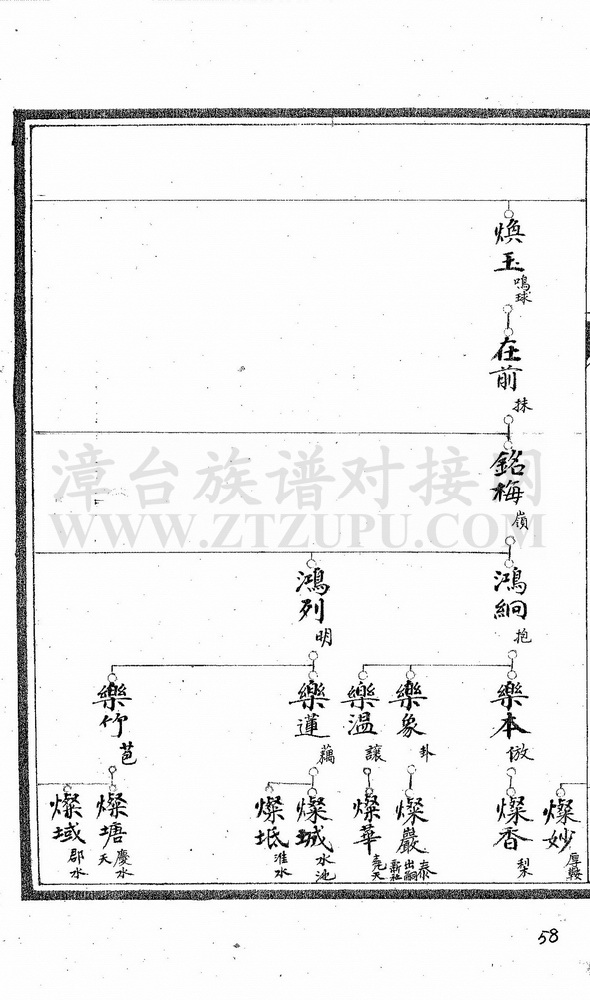 煥玉
鳴球
在前
抹
銘梅
嶺
鴻絅
抱
鴻列
明
樂本
倣
樂象
卦
樂温
讓
樂蓮
藕
樂竹
苞
燦妙
厚鞍
燦香
梨
燦嚴
泰
出嗣
新社
燦華
堯天
燦城
水沲
燦坻
淮水
燦塘
慶水
天
燦域
郡水
漳台族谱对接网
WWW.ZTZUPU.COM
58